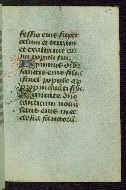 fessio eius super
celum et terram
et exaltauit cor
nu populi sui.
Ymnus omib
sanctis eius filiis
israel populo ap
propinquanti sibi.
Cantate dno
canticum nouum
laus eius in ec
clesia sanctorum